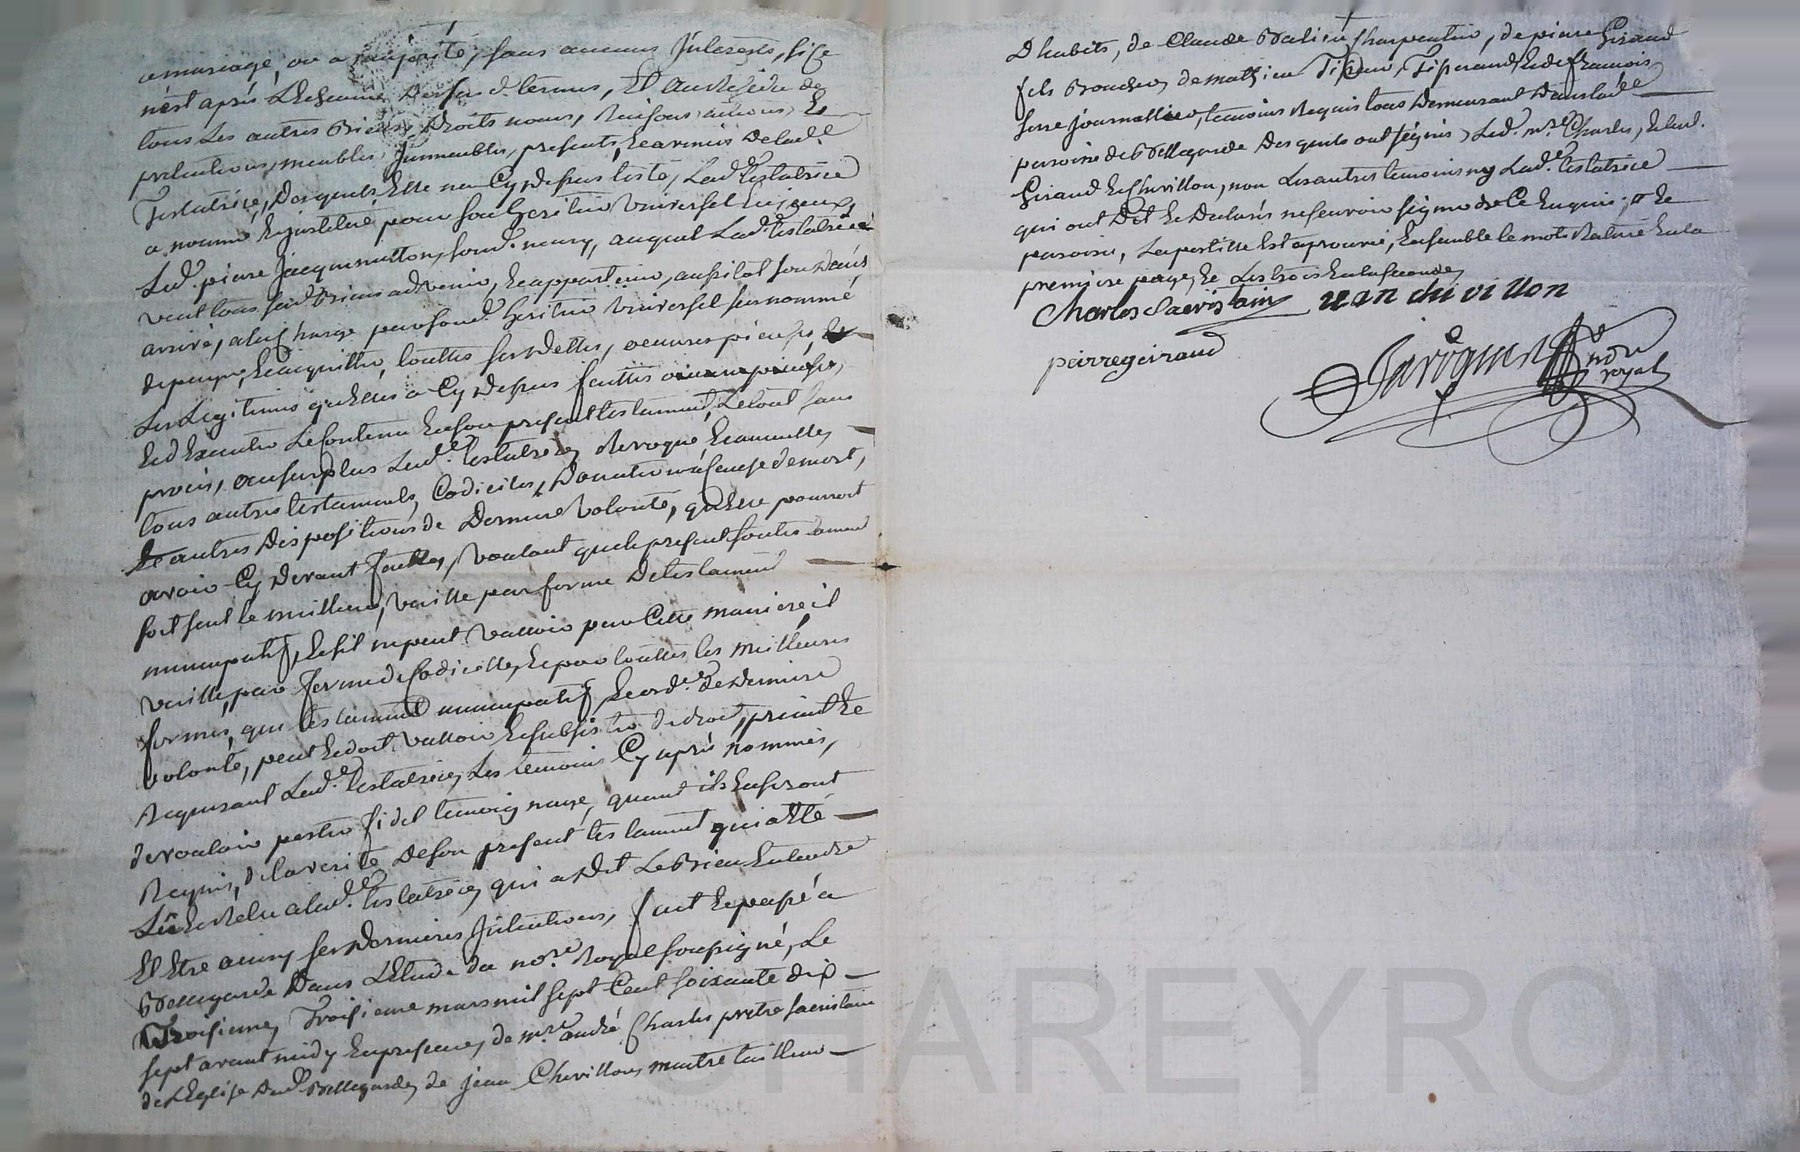 mariage, ou a majorité, sans aucuns Interests, si ce
n'est après L'Echeance Desdits termes, Et au Residu de
tous Les autres Biens, Droits noms, Raisons, actions, Et
pretentions, meubles, Immeubles, presents, Et avenir De lade
Testatrice, Desquels Elle na Cy Dessus testé, Lade testatrice
a nommé Et institué pour son heritier Universel
Led. pierre Jacquemetton, sond. neveu, auquel Lade testatrice
veut tous sesd. Biens advenir, Et appartenir, aussitot son Deces
arrivé, a la Charge par sond. heritier Universel sus nommé
de payer, Et acquitter, touttes ses Dettes, oeuvres pieuses, Et
Les Legitimes quelle a Cy Dessus faittes
Et d'Executer Le Contenu En son present testament, Le tout sans
procès, au surplus Lade testatrice Revoque, Et annulle
tous autres testaments, Codiciles, Donation a Cause de mort,
Et autres Dispositions de Derniere Volonté, qu'Elle pourroit
avoir Cy Devant faittes, Voulant que le present son testament
soit seul Le meilleur, Vaille par forme De testament
nuncupatif, Et s'il ne peut Valloir par Cette maniere, il
Vaille, par forme de Codicille, Et par touttes les meilleures
formes, que testament nuncupatif Et ord.re de Derniere
volonté, peut Et doit Valloir Et subsister de droit, priant Et
Requerant Lade testatrice, Les temoins Cy après nommés,
de vouloir porter fidel temoignage, quand ils En seront
Requis, de la verité De son present testament qui a Eté
Lû Et Relu a lade testatrice, qui a Dit Le Bien Entendre
Et Etre ainsy ses Dernieres Intentions, fait Et passé a
Bellegarde Dans L'Etude du nore Royal soussigné, Le
Troisieme mars mil sept Cent soixante dix
sept avant midy En presence, de mre andré Charles pretre sacristain
de L'Eglise Dud. Bellegarde, de jean Chevillon, maitre tailleur
D'habits, de Claude Charpentier, de pierre Giraud
fils Boucher, de mathieu Tisserand, Et de francois
journallier, temoins Requis tous Demeurant Dans lade
paroisse de Bellegarde Desquels ont signés, Led. mre Charles, Led.
Giraud Et Chevillon, non Les autres temoins ny Lade testatrice
qui ont Dit Et Declaré ne sçavoir signer de Ce Enquis; Et
paroisse, La postille Est aprouvée, Ensemble le mots En la
premiere page, Et Les trois En la seconde
Charles Sacristain jean chivillon
pierre geiraud
nore
royal
CHAREYRON